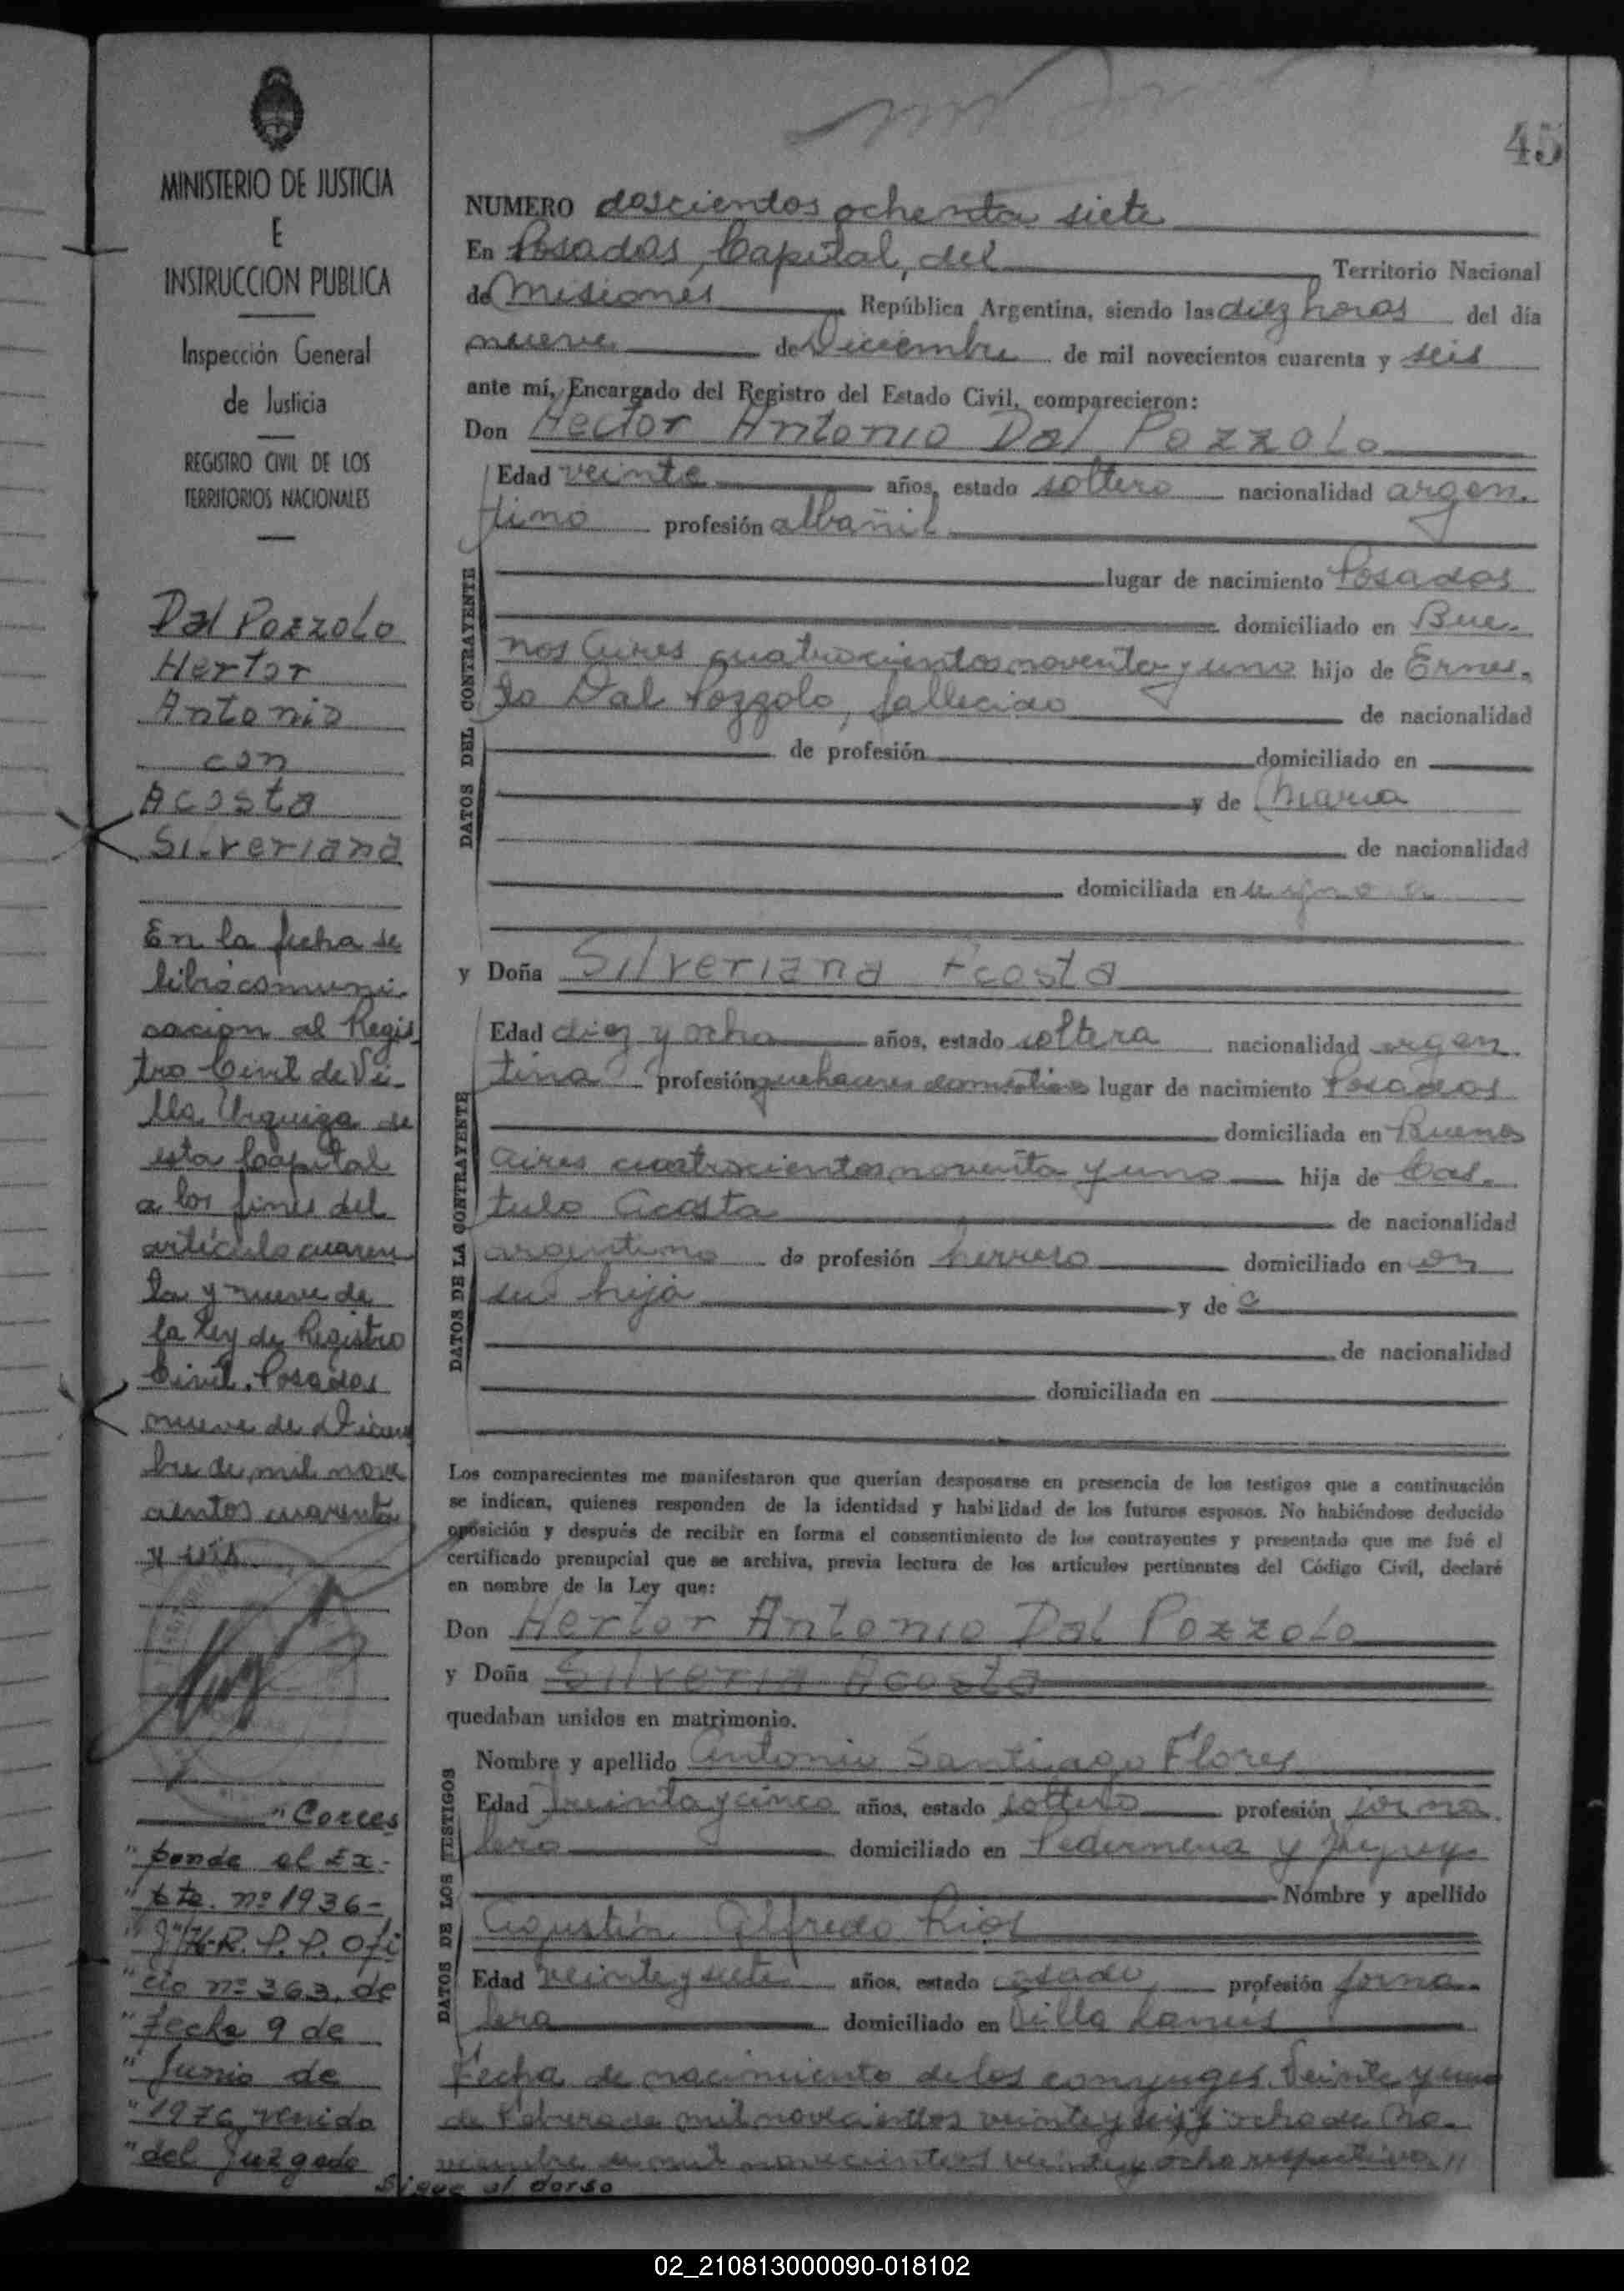 45
MINISTERIO DE JUSTICIA
E
INSTRUCCION PUBLICA
Inspección General
de Justicia
REGISTRO CIVIL DE LOS
TERRITORIOS NACIONALES
Dal Pozzolo
Hertor
Antonio
con
Acosta
Silveriana
En la fecha se
libró comuni
cacion al Regis
tro Civil de Vi
lla Urquiza de
esta Capital
a los fines del
artículo cuaren
ta y nueve de
la Ley de Registro
Civil. Posadas
nueve de Diciem
bre de mil nove
cientos cuarenta
y seis
"Corres
"ponde al Ex-
"pte. nº 1936-
R. P. P. Ofi
"cio nº 363, de
"fecha 9 de
"Junio de
"1976 venido
"del Juzgado
Sigue al dorso
NUMERO doscientos ochenta siete
En Posadas, Capital, del Territorio Nacional
de Misiones República Argentina, siendo las diez horas del día
nueve de Diciembre de mil novecientos cuarenta y seis
ante mí, Encargado del Registro del Estado Civil, comparecieron:
Don Hector Antonio Dal Pozzolo
DATOS DEL CONTRAYENTE
Edad veinte años, estado soltero nacionalidad argen.
tino profesión albañil
lugar de nacimiento Posadas
domiciliado en Bue.
nos Aires cuatrocientos noventa y uno hijo de Ernes.
to Dal Pozzolo, fallecido de nacionalidad
de profesión domiciliado en
y de Maria
de nacionalidad
domiciliada en
y Doña Silveriana Acosta
DATOS DE LA CONTRAYENTE
Edad diez y ocho años, estado soltera nacionalidad argen.
tina profesión quehaceres domesticos lugar de nacimiento Posadas
domiciliada en Buenos
Aires cuatrocientos noventa y uno hija de Cas.
tulo Acosta de nacionalidad
argentino de profesión herrero domiciliado en con
su hija y de
de nacionalidad
domiciliada en
Los comparecientes me manifestaron que querían desposarse en presencia de los testigos que a continuación
se indican, quienes responden de la identidad y habilidad de los futuros esposos. No habiéndose deducido
oposición y después de recibir en forma el consentimiento de los contrayentes y presentado que me fué el
certificado prenupcial que se archiva, previa lectura de los artículos pertinentes del Código Civil, declaré
en nombre de la Ley que:
Don Hertor Antonio Dal Pozzolo
y Doña Silveria Acosta
quedaban unidos en matrimonio.
DATOS DE LOS TESTIGOS
Nombre y apellido Antonio Santiago Flores
Edad Treinta y cinco años, estado soltero profesión jorna.
lero domiciliado en Pedernera y Jujuy
Nombre y apellido
Agustín Alfredo Rios
Edad veinte y siete años, estado casado profesión jorna.
lero domiciliado en Villa Lanus
Fecha de nacimiento de los conyuges. Veinte y uno
de Febrero de mil novecientos veinte y seis y ocho de No.
viembre de mil novecientos veinte y ocho respectiva //
02_210813000090-018102